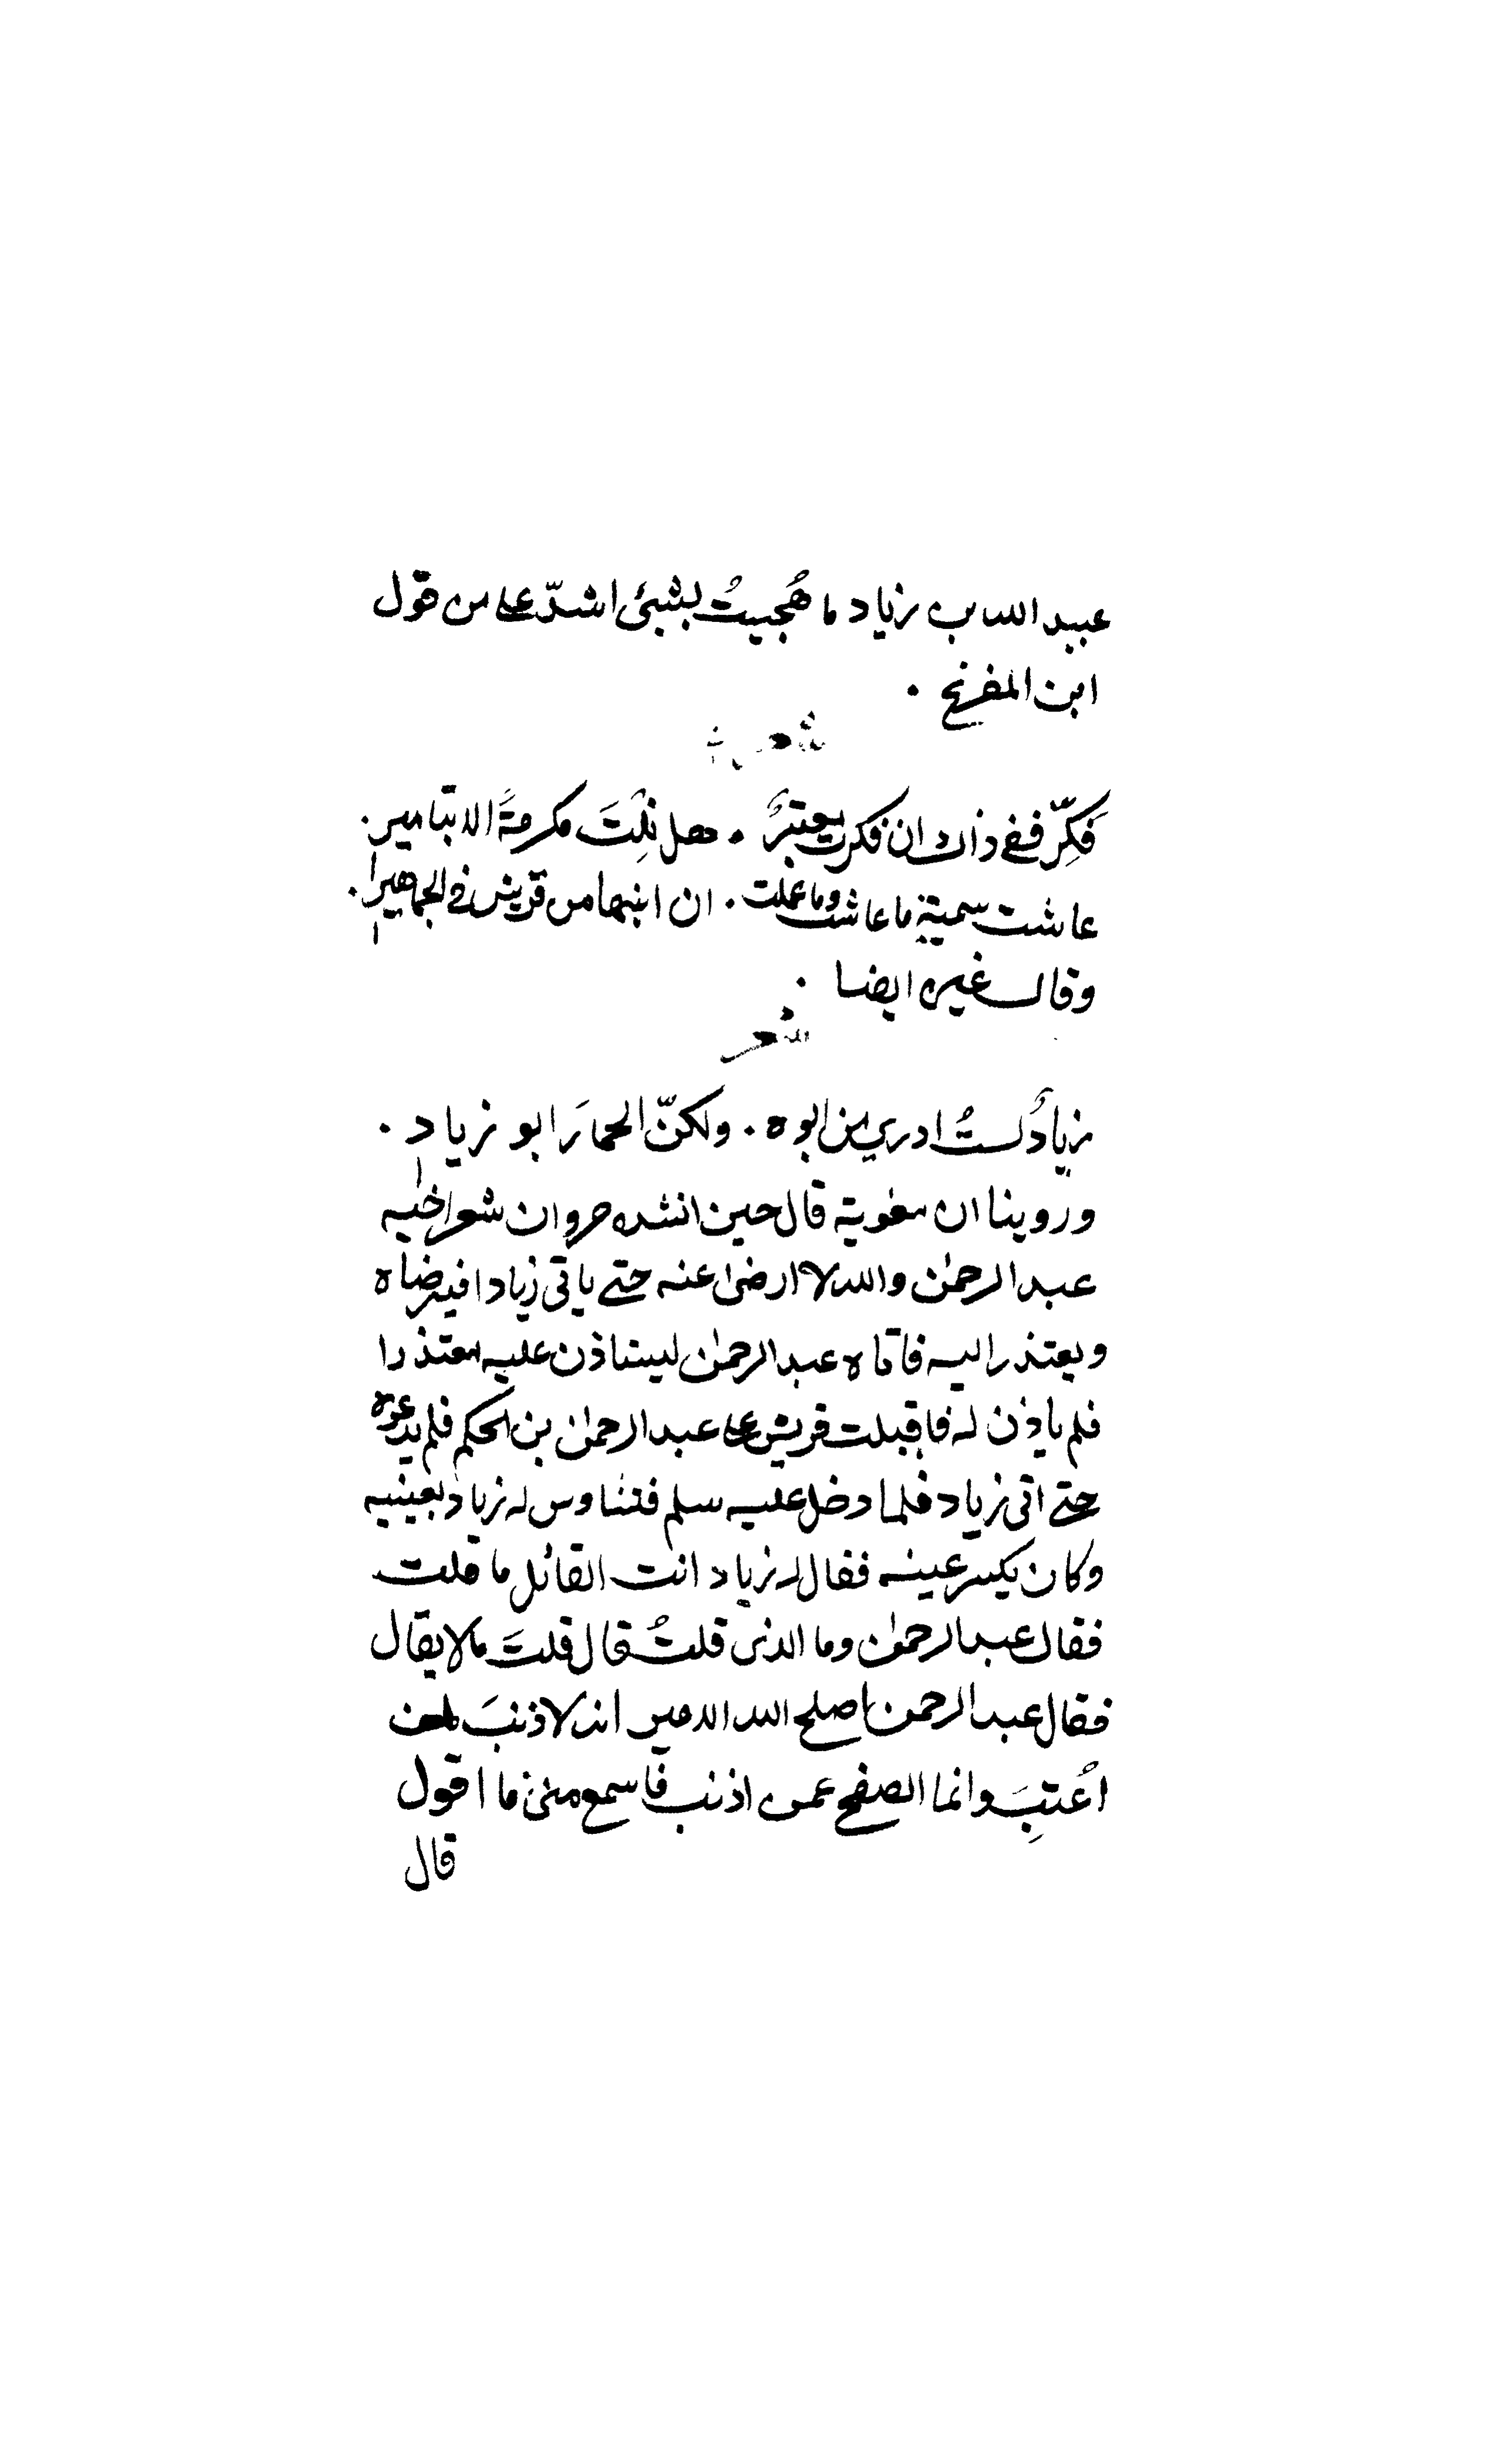 عبيد الله بن زياد ما هُجيتُ بشيئ اشدّ على من قول
ابن المفرغ ٠
شعر
فَكِّرْ ففي ذاك ان فكرت يعتبرُ ٠ هل نِلْتَ مكرمةً الا بتامير ٠
عاشت سمية ما عاشت وما عملت ٠ ان ابنها من قريش في الجماهير ٠
وقال غيره ايضا ٠
شعر
زيادٌ لستُ ادري من ابوه ٠ ولكنّ الحمارَ ابو زياد ٠
وروينا ان معوية قال حين انشده مروان شعر اخيه
عبد الرحمن والله لا ارضى عنه حتى ياتي زيادا فيترضاه
ويعتذر اليه فاتاه عبد الرحمن ليستاذن عليه معتذرا
فلم ياذن له فاقبلت قريش على عبد الرحمن بن الحكم فلم يدعوه
حتى اتى زياد فلما دخل عليه سلم فتشاوس له زياد بعينيه
وكان يكسر عينه فقال له زياد انت القائل ما قلت
فقال عبد الرحمن وما الذي قلتُ قال قلتَ مالا يقال
فقال عبد الرحمن اصلح الله الامير انه لا ذنبَ لمن
اُعتِبَ وانما الصفح عمن اذنب فاسمع مني ما اقول
قال